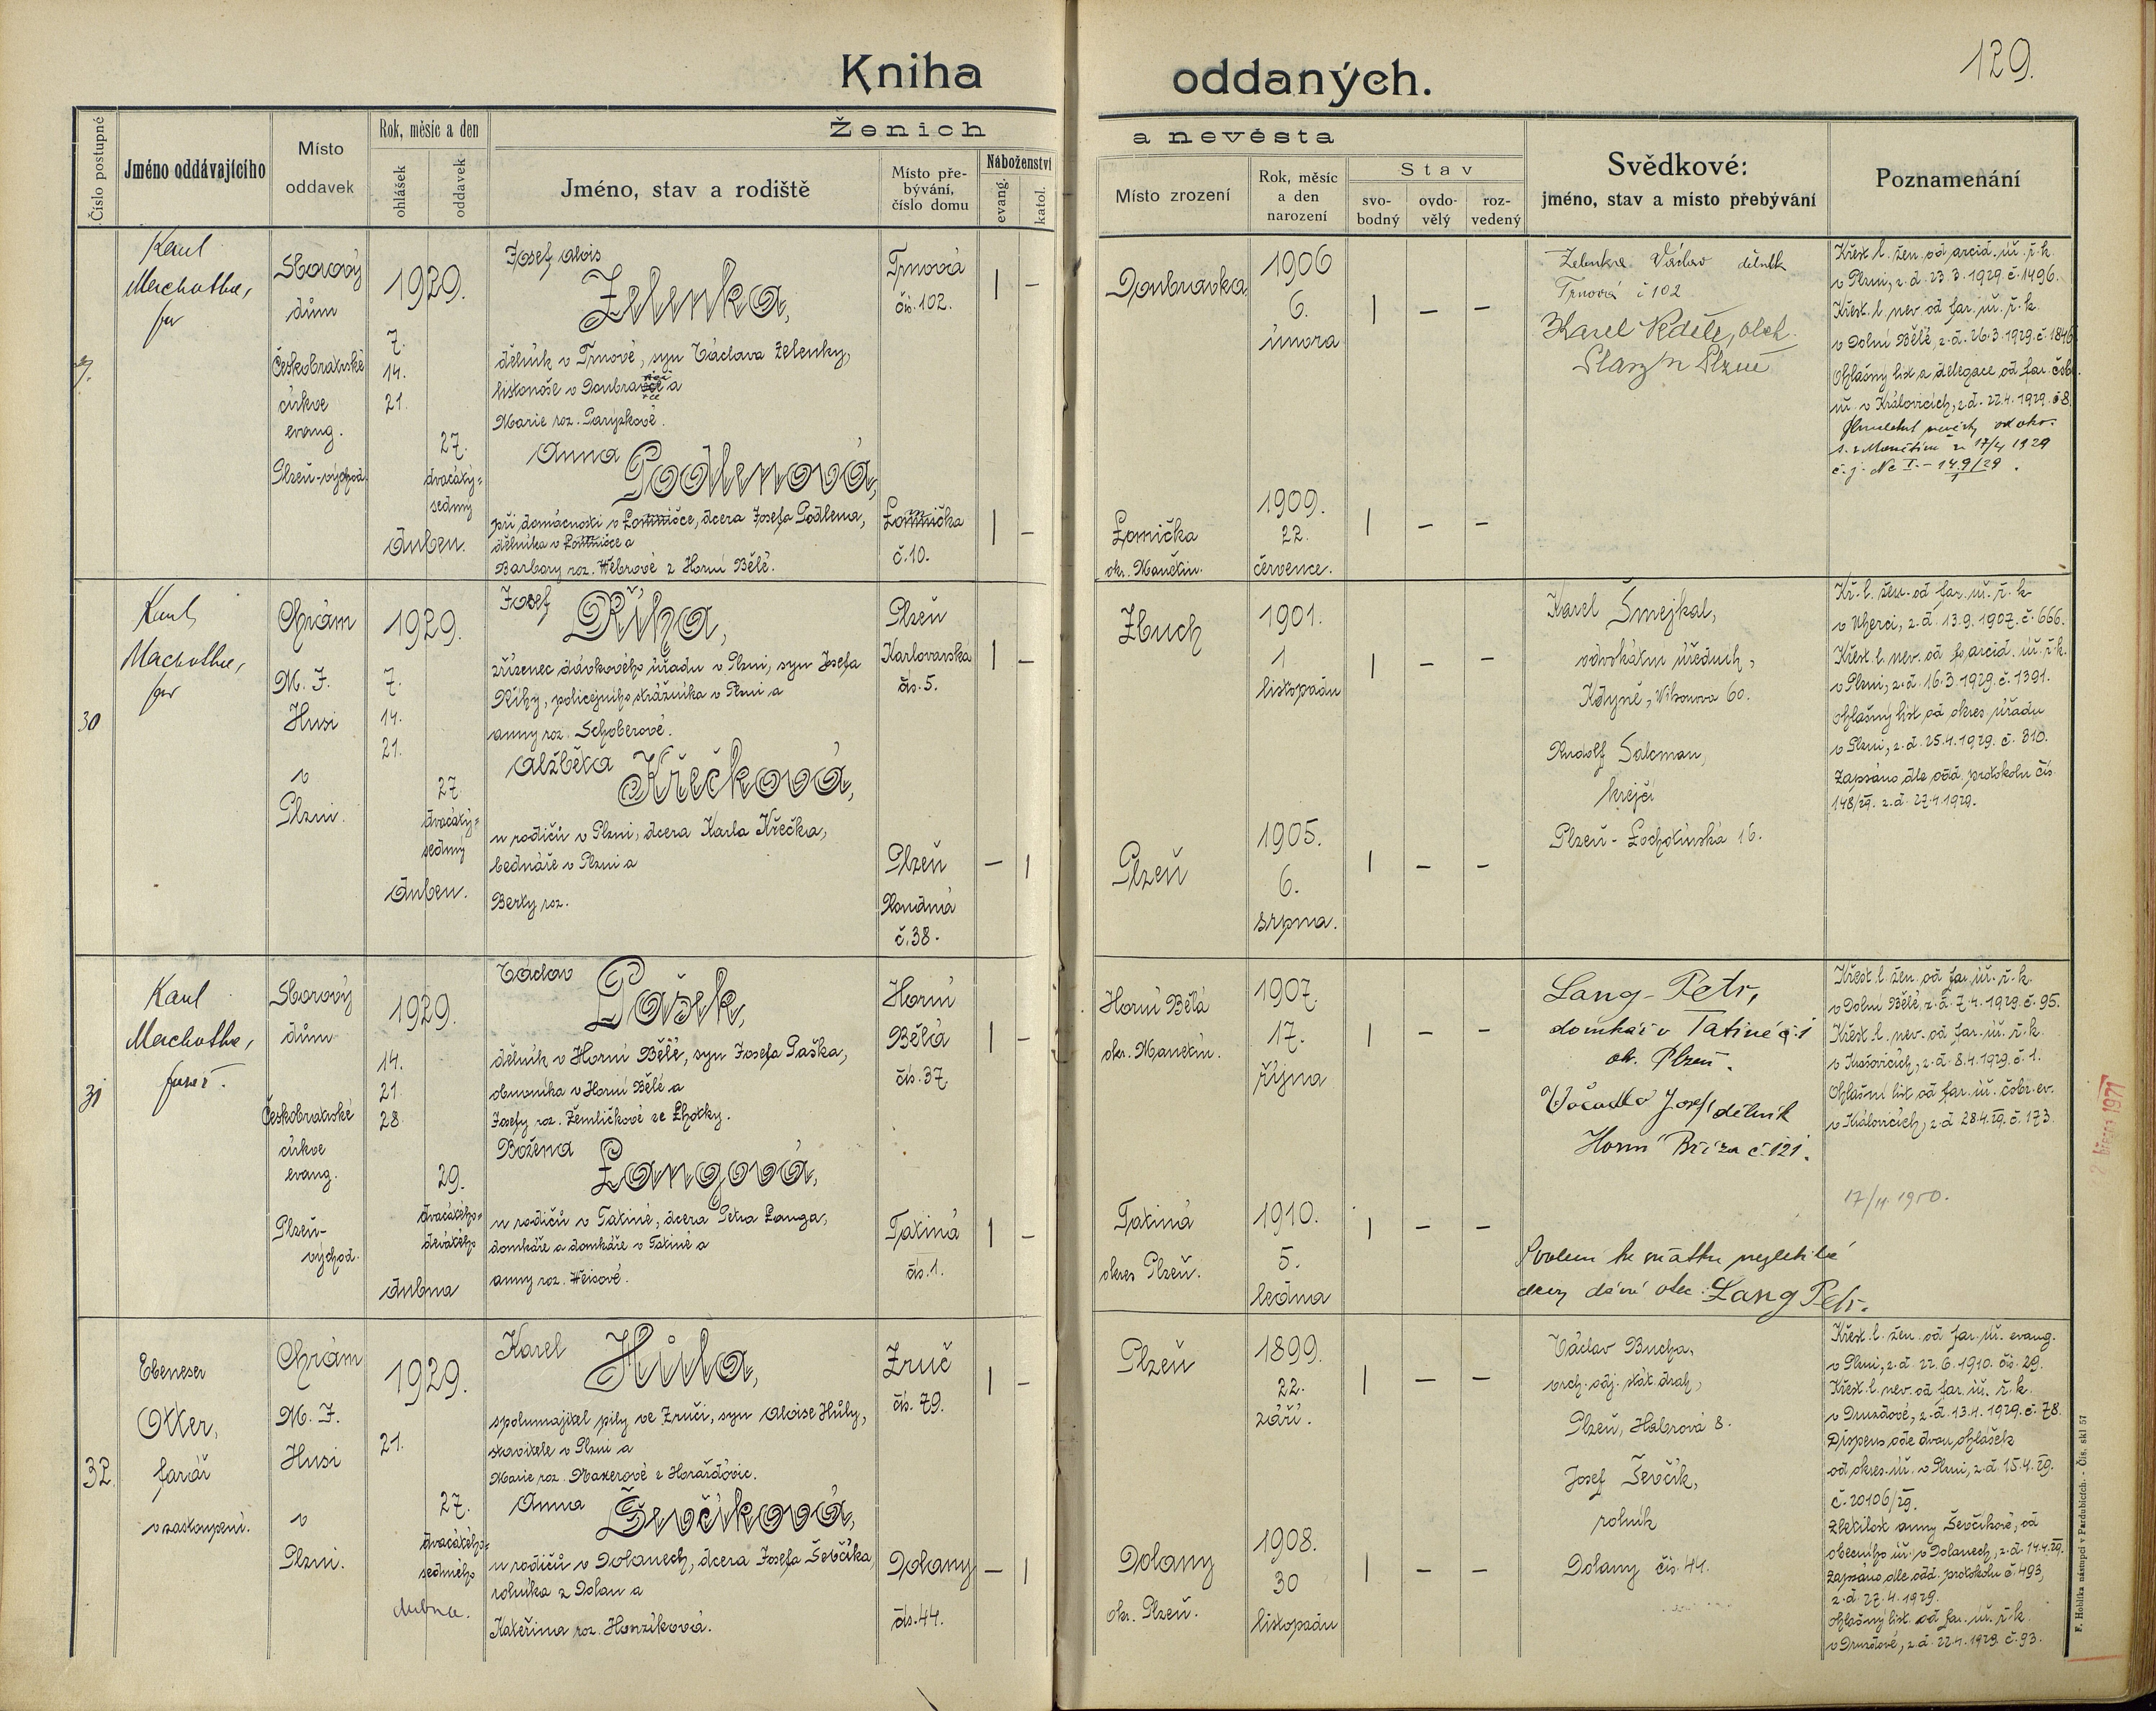 129.
Kniha oddaných.
Číslo postupné
Jméno oddávajícího
Místo
oddavek
Rok, měsíc a den
ohlášek
oddavek
Ženich a nevěsta
Jméno, stav a rodiště
Místo pře-
bývání,
číslo domu
Náboženství
evang.
katol.
Místo zrození
Rok, měsíc
a den
narození
Stav
svo-
bodný
ovdo-
vělý
roz-
vedený
Svědkové:
jméno, stav a místo přebývání
Poznamenání
Karel
Machotka,
far
Sborový
dům
Českobratrské
církve
evang.
Plzeň-východ
1929.
7.
14.
21.
27.
dvacátý-
sedmý
duben.
Josef Alois
Zelenka,
dělník v Trnové, syn Václava Zelenky,
listonoše v Doubravce a
Marie roz. Parýzkové.
Trnová
čís. 102.
| –
Doubravka
1906
6.
února
| – –
Anna
Podlenová,
při domácnosti v Lomničce, dcera Josefa Podlena,
dělníka v Lomničce a
Barbory roz. Wébrové z Horní Bělé.
Lomnička
č. 10.
| –
Lomička
okr. Manětín.
1909.
22.
července.
| – –
Zelenka Václav dělník
Trnová č 102
Karel Neděle, obch.
Plasy n Plzně
Křest. l. žen. od arcid. úř. ř. k.
v Plzni, z. d. 23. 3. 1929. č. 1496.
Křest. l. nev. od far. úř. ř. k.
v Dolní Bělé, z. d. 26. 3. 1929. č. 184
Ohlašný list a delegace od far. čsbr.
úř. v Kralovicích, z. d. 22. 4. 1929. č. 8
17/4 1929
č. j. Nc I. – 149/29.
30
Karel
Machotka,
far
Chrám
M. J.
Husi
v
Plzni.
1929.
7.
14.
21.
27.
dvacátý-
sedmý
duben.
Josef
Říha,
zřízenec dávkového úřadu v Plzni, syn Josefa
Říhy, policejního strážníka v Plzni a
Anny roz. Schoberové.
Plzeň
Karlovarská
čís. 5.
| –
Zbuch
1901.
1.
listopadu
| – –
Alžběta
Křečková,
u rodičů v Plzni, dcera Karla Křečka,
bednáře v Plzni a
Berty roz.
Plzeň
Roudná
č. 38.
– |
Plzeň
1905.
6.
srpna.
| – –
Karel Šmejkal,
advokátní úředník,
Kdyně, Wilsonova 60.
Rudolf Salcman,
krejčí
Plzeň - Lochotínská 16.
Kř. l. žen. od far. úř. ř. k.
v Úherci, z. d. 13. 9. 1907. č. 666.
Křest. l. nev. od arcid. úř. ř. k.
v Plzni, z. d. 16. 3. 1929. č. 1391.
Ohlašný list od okres. úřadu
v Plzni, z. d. 25. 4. 1929. č. 310.
Zapsáno dle odd. protokolu čís.
148/29. z. d. 27. 4. 1929.
31
Karel
Machotka,
farář.
Sborový
dům
Českobratrské
církve
evang.
Plzeň-
východ.
1929.
14.
21.
28.
29.
dvacátého-
devátého
dubna
Václav
Pašek,
dělník v Horní Bělé, syn Josefa Paška,
obuvníka v Horní Bělé a
Josefy roz. Žemličkové ze Lhotky.
Horní
Bělá
čís. 37.
| –
Horní Bělá
okr. Manětín.
1907.
17.
října
| – –
Božena
Langová,
u rodičů v Tatiné, dcera Petra Langa,
domkáře a domkáře v Tatiné a
Anny roz. Weisové.
Tatiná
čís. 1.
| –
Tatiná
okres Plzeň.
1910.
5.
ledna
| – –
Lang Petr,
domkář v Tatiné č. 1
ok. Plzeň.
Vočadlo Josef dělník
Horní Bříza č. 121.
Svolení ke sňatku nezletilé
dcery dává otec: Lang Petr.
Křest. l. žen. od far. úř. ř. k.
v Dolní Bělé, z. d. 7. 4. 1929. č. 95.
Křest. l. nev. od far. úř. ř. k.
v Krašovicích, z. d. 8. 4. 1929. č. 1.
Ohlašní list od far. úř. čsbr. ev.
v Kralovicích, z. d. 28. 4. 29. č. 173.
17/4 1950.
března 1971
32.
Ebeneser
Otter,
farář
v zastoupení.
Chrám
M. J.
Husi
v
Plzni.
1929.
21.
27.
dvacátého-
sedmého
dubna.
Karel
Hůla,
spolumajitel pily ve Zruči, syn Aloise Hůly,
stavitele v Plzni a
Marie roz. Maxerové z Horažďovic.
Zruč
čís. 79.
| –
Plzeň
1899.
22.
září.
| – –
Anna
Ševčíková,
u rodičů v Dolanech, dcera Josefa Ševčíka,
rolníka z Dolan a
Kateřina roz. Honzíková.
Dolany
čís. 44.
– |
Dolany
okr. Plzeň.
1908.
30
listopadu
| – –
Václav Bucha,
vrch. adj. stát. drah,
Plzeň, Habrová 8.
Josef Ševčík,
rolník
Dolany čís. 44.
Křest. l. žen. od far. úř. evang.
v Plzni, z. d. 22. 6. 1910. čís. 29.
Křest. l. nev. od far. úř. ř. k.
v Druzdové, z. d. 13. 4. 1929. č. 78.
Dispens ode dvou ohlášek
od okres. úř. v Plzni, z. d. 15. 4. 29.
č. 20106/29.
Zletilost Anny Ševčíkové, od
obecního úř. v Dolanech, z. d. 14. 4. 29.
Zapsáno dle odd. protokolu č. 493,
z. d. 27. 4. 1929.
Ohlašný list od far. úř. ř. k.
v Druzdové, z. d. 22. 4. 1929. č. 93.
F. Hoblíka nástupci v Pardubicích. - Čís. skl 57